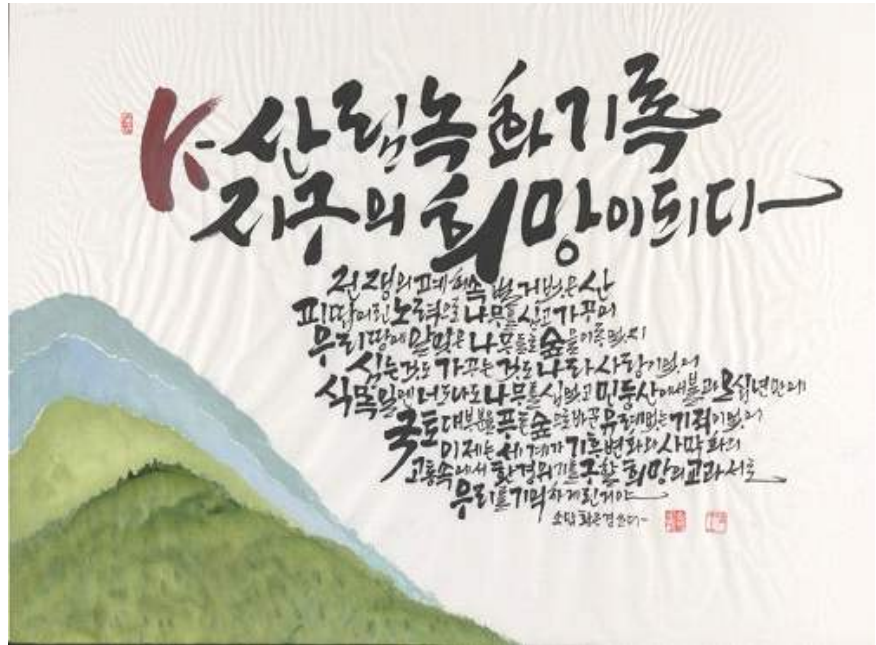 K-산림녹화기록
지구의 희망이되다
전쟁의 폐허속 벌거벗은 산
피땀어린 노력으로 나무를 심고 가꾸며
우리땅에 알맞은 나무들로 숲을 이룩했지
심는것도 가꾸는것도 나라사랑이었어
식목일엔 너도나도 나무를 심었고 민둥산에서 불과 오십년만에
국토 대부분을 푸른숲으로 바꾼 유례없는 기적이었어
이제는 세계가 기후변화와 사막화의
고통속에서 환경위기를 구할 희망의 교과서로
우리를 기억하게 된거야
소담 황은경 쓰다